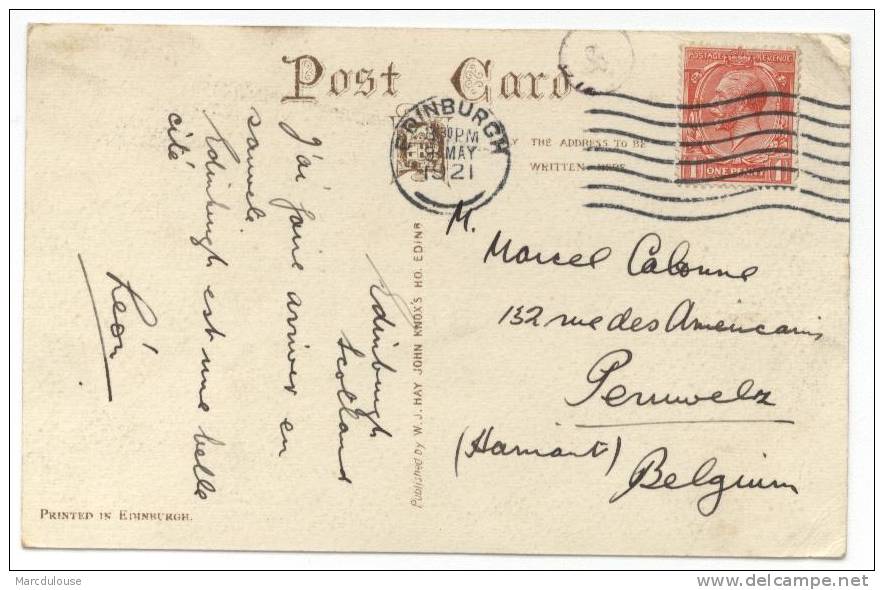 Post Card
EDINBURGH
8.30 PM
MAY
1921
POSTAGE REVENUE
1 ONE PENNY 1
THE ADDRESS TO BE
WRITTEN HERE
Edinburgh
Scotland
J'ai faire arriver en
samedi.
Edinburgh est une belle
cité
Léon
Published by W. J. HAY JOHN KNOX'S HO. EDINR
M.
Marcel Calonne
132 rue des Americains
Peruwelz
(Hainaut)
Belgium
PRINTED IN EDINBURGH.
Marcdulouse
delcampe.net